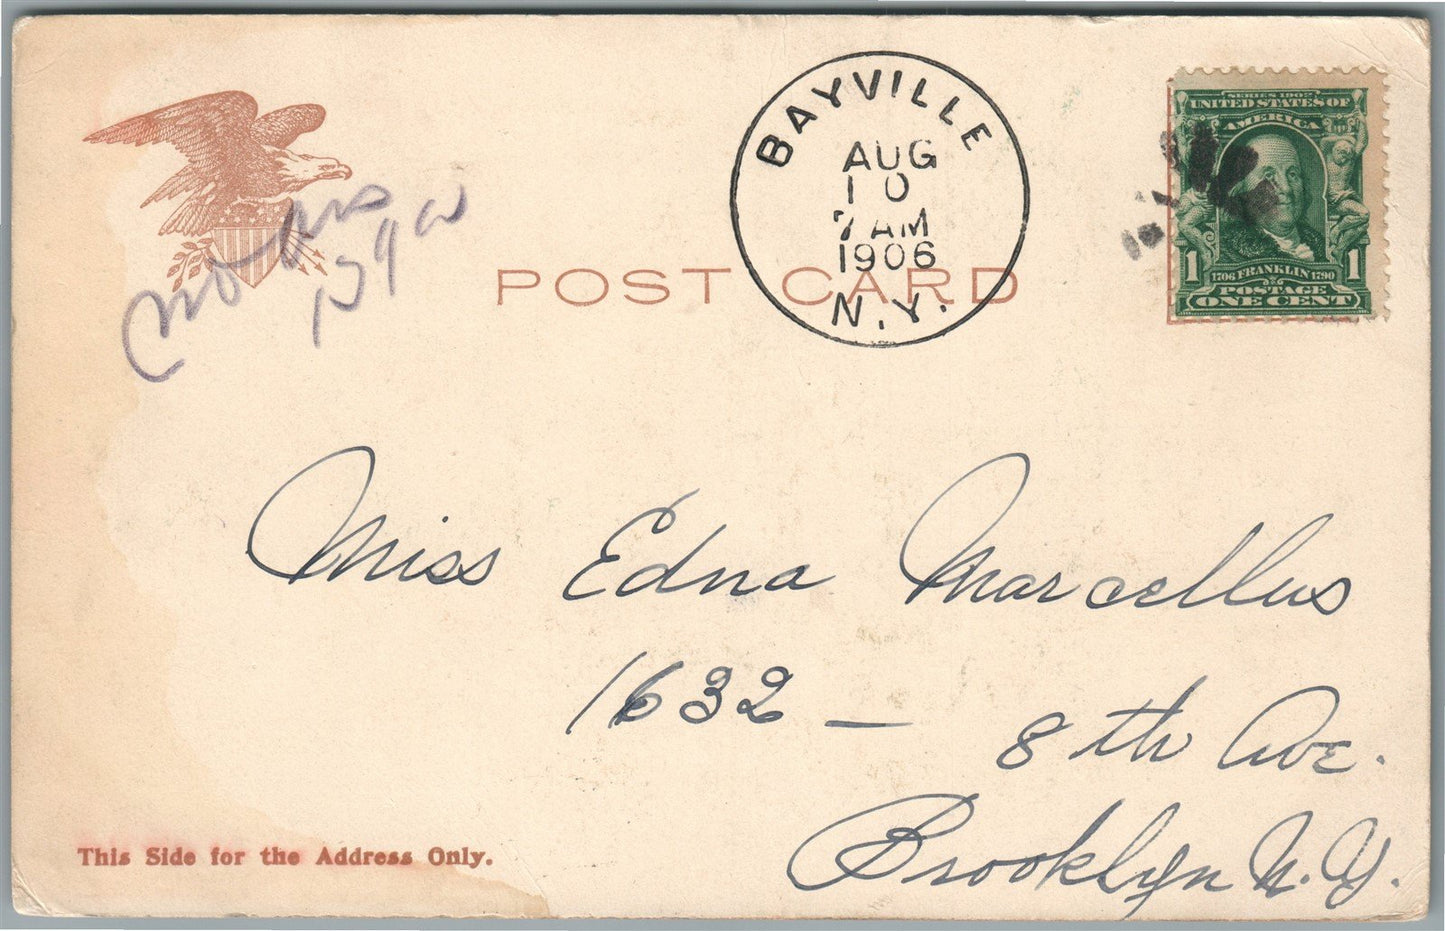 BAYVILLE
AUG
10
7 AM
1906
N.Y.
SERIES 1902
UNITED STATES OF
AMERICA
1706 FRANKLIN 1790
1 1
POSTAGE
ONE CENT
POST CARD
Miss Edna Marcellus
1632 —
8th Ave.
Brooklyn N.Y.
This Side for the Address Only.